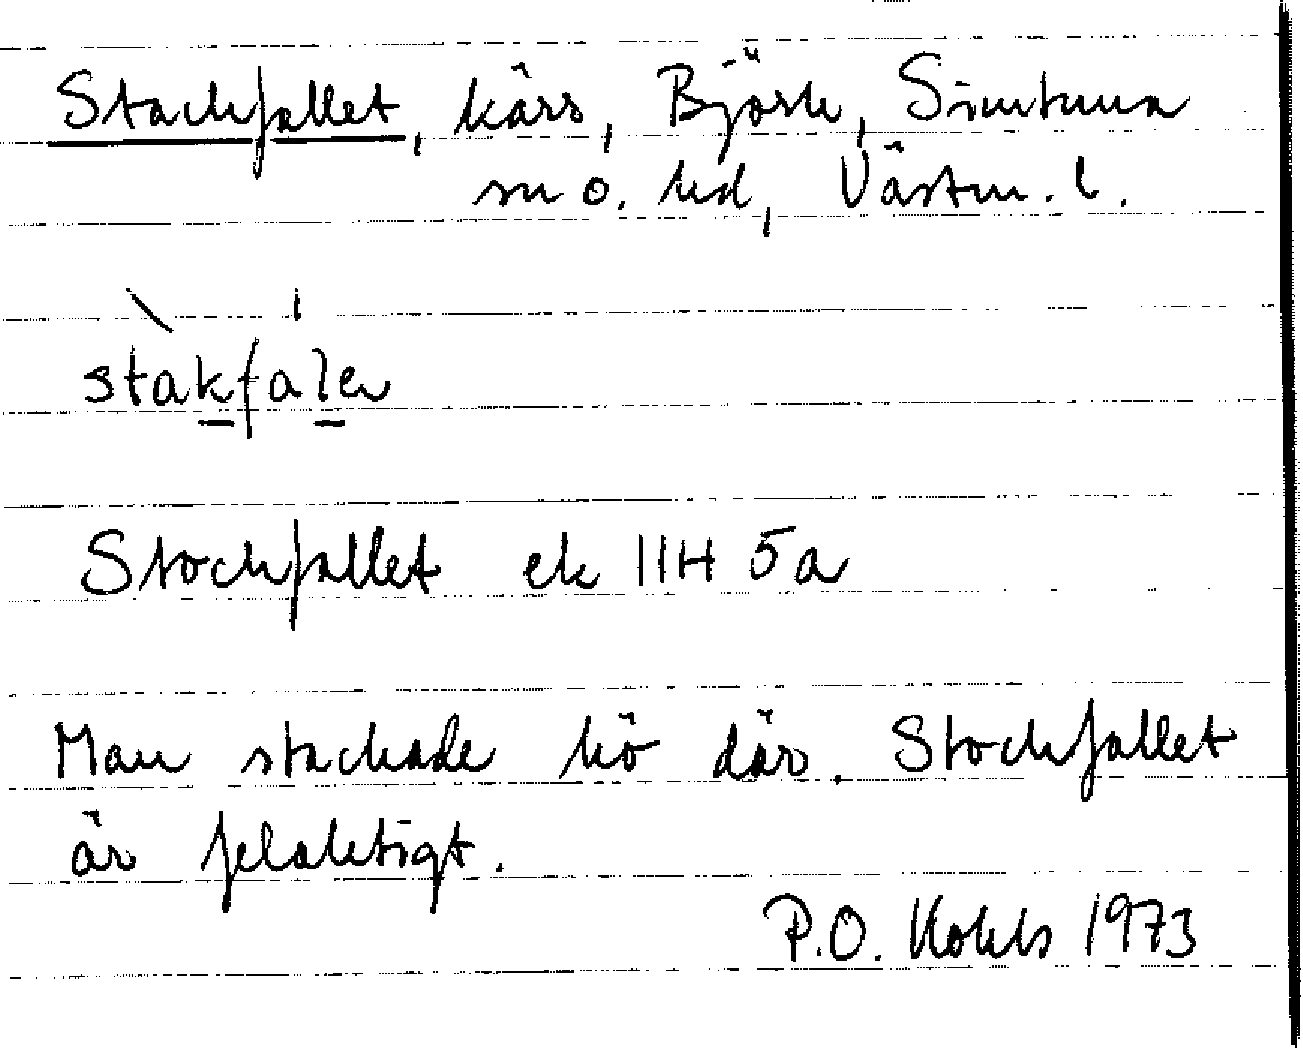 Stackfallet, kärr, Björk, Simtuna
sn o. hd, Västm. l.
stakfalen
Stockfallet ek 11H 5a
Man stackade hö där. Stockfallet
är felaktigt.
P.O. 1973